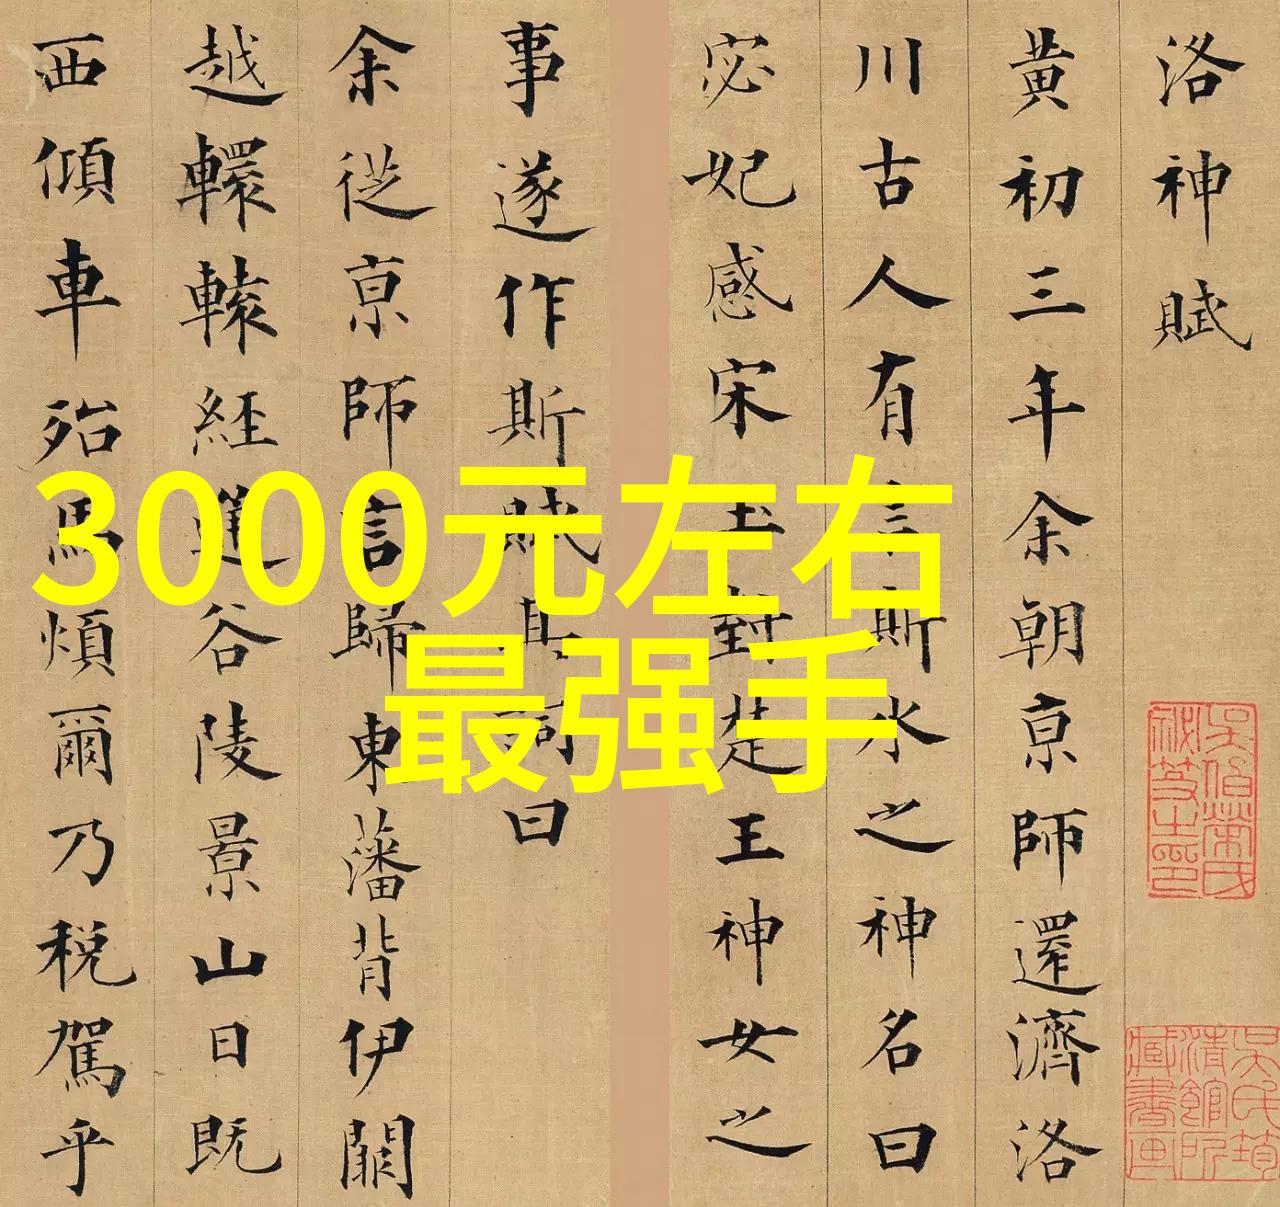 洛神賦
黄初三年余朝京師還濟洛
川古人有言斯水之神名曰
宓妃感宋玉對楚王神女之
事遂作斯賦其詞曰
余從京師言歸東藩背伊闕
越轘轅經通谷陵景山日既
西傾車殆馬煩爾乃税駕乎
3000元左右
最强手